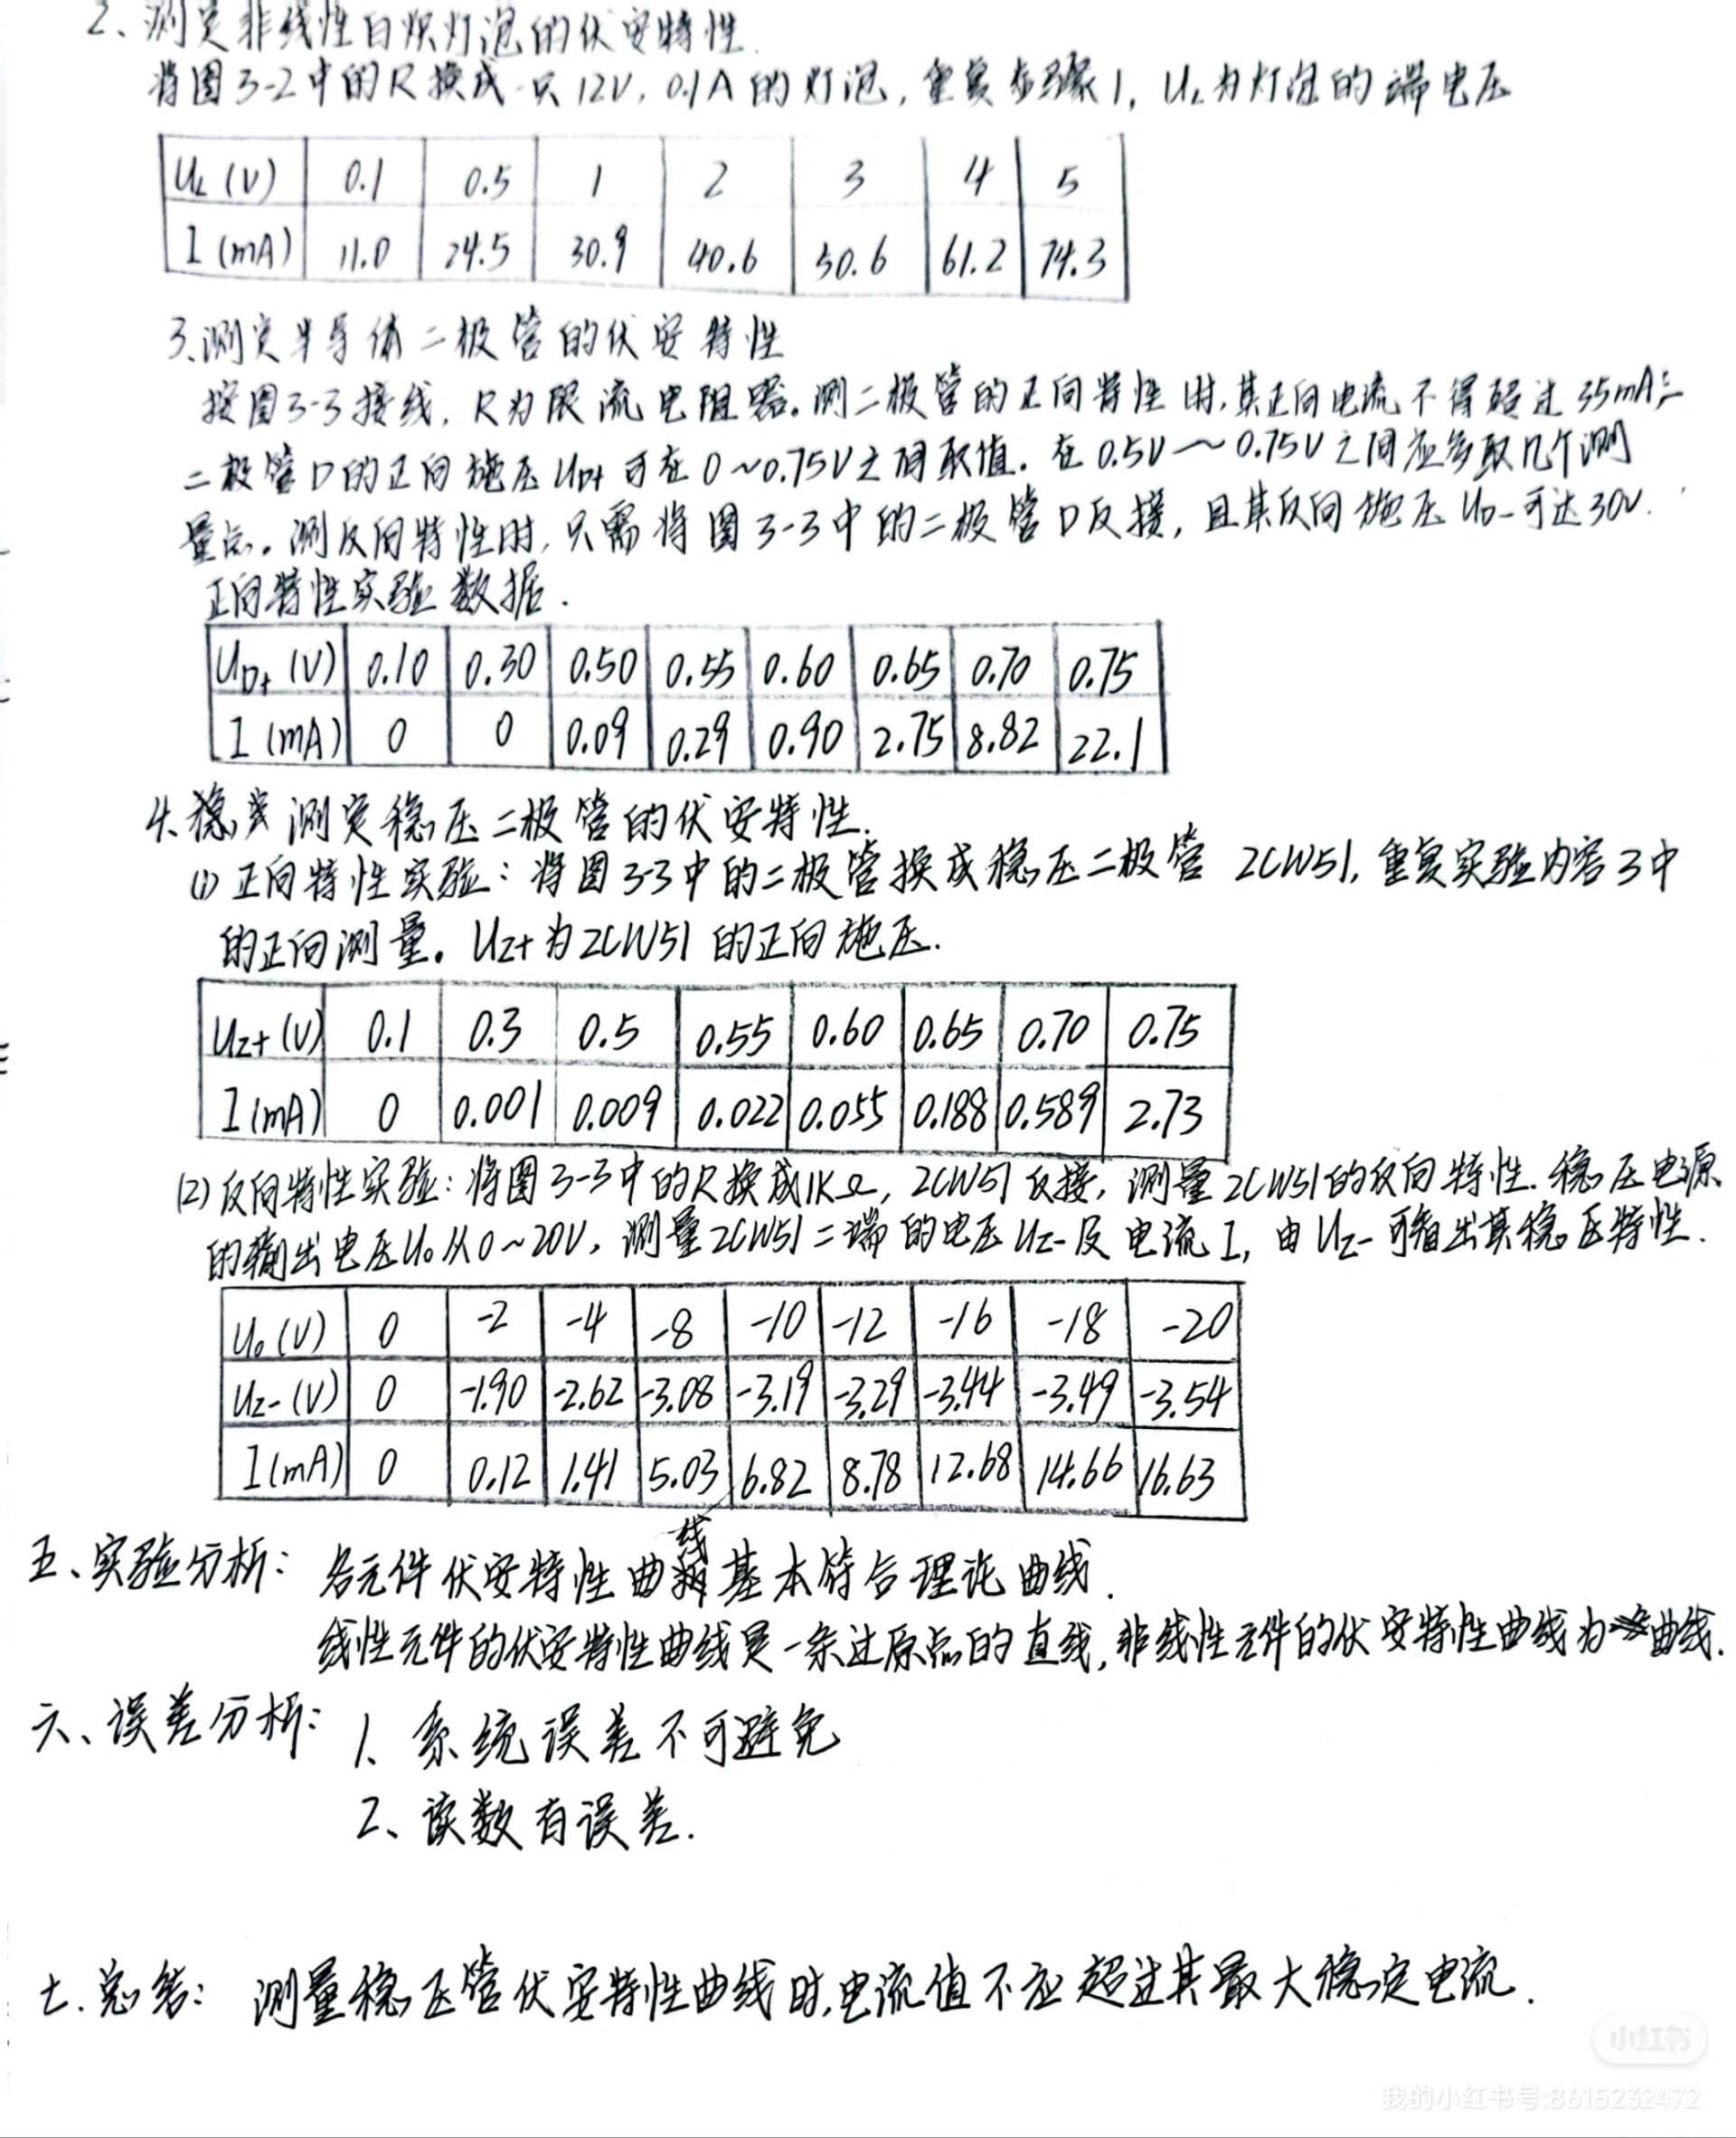 2、测定非线性白炽灯泡的伏安特性.
将图3-2中的R换成一只12V，0.1A的灯泡，重复步骤1，UL为灯泡的端电压
UL (V) 0.1 0.5 1 2 3 4 5
I (mA) 11.0 24.5 30.9 40.6 50.6 61.2 74.3
3、测定半导体二极管的伏安特性
按图3-3接线，R为限流电阻器。测二极管的正向特性时，其正向电流不得超过35mA，
二极管D的正向施压UD+可在0~0.75V之间取值。在0.5V~0.75V之间应多取几个测
量点。测反向特性时，只需将图3-3中的二极管D反接，且其反向施压UD-可达30V.
正向特性实验数据.
UD+ (V) 0.10 0.30 0.50 0.55 0.60 0.65 0.70 0.75
I (mA) 0 0 0.09 0.29 0.90 2.75 8.82 22.1
4、测定稳压二极管的伏安特性.
(1) 正向特性实验：将图3-3中的二极管换成稳压二极管 2CW51，重复实验内容3中
的正向测量。UZ+为2CW51的正向施压.
UZ+ (V) 0.1 0.3 0.5 0.55 0.60 0.65 0.70 0.75
I (mA) 0 0.001 0.009 0.022 0.055 0.188 0.589 2.73
(2) 反向特性实验：将图3-3中的R换成1KΩ，2CW51反接，测量2CW51的反向特性. 稳压电源
的输出电压U0从0~20V，测量2CW51二端的电压UZ-及电流I，由UZ-可看出其稳压特性.
U0 (V) 0 -2 -4 -8 -10 -12 -16 -18 -20
UZ- (V) 0 -1.90 -2.62 -3.08 -3.19 -3.29 -3.44 -3.49 -3.54
I (mA) 0 0.12 1.41 5.03 6.82 8.78 12.68 14.66 16.63
五、实验分析：各元件伏安特性曲线基本符合理论曲线.
线性元件的伏安特性曲线是一条过原点的直线，非线性元件的伏安特性曲线为曲线.
六、误差分析：1、系统误差不可避免
2、读数有误差.
七.总结：测量稳压管伏安特性曲线时，电流值不应超过其最大稳定电流.
小红书
我的小红书号:8615232472